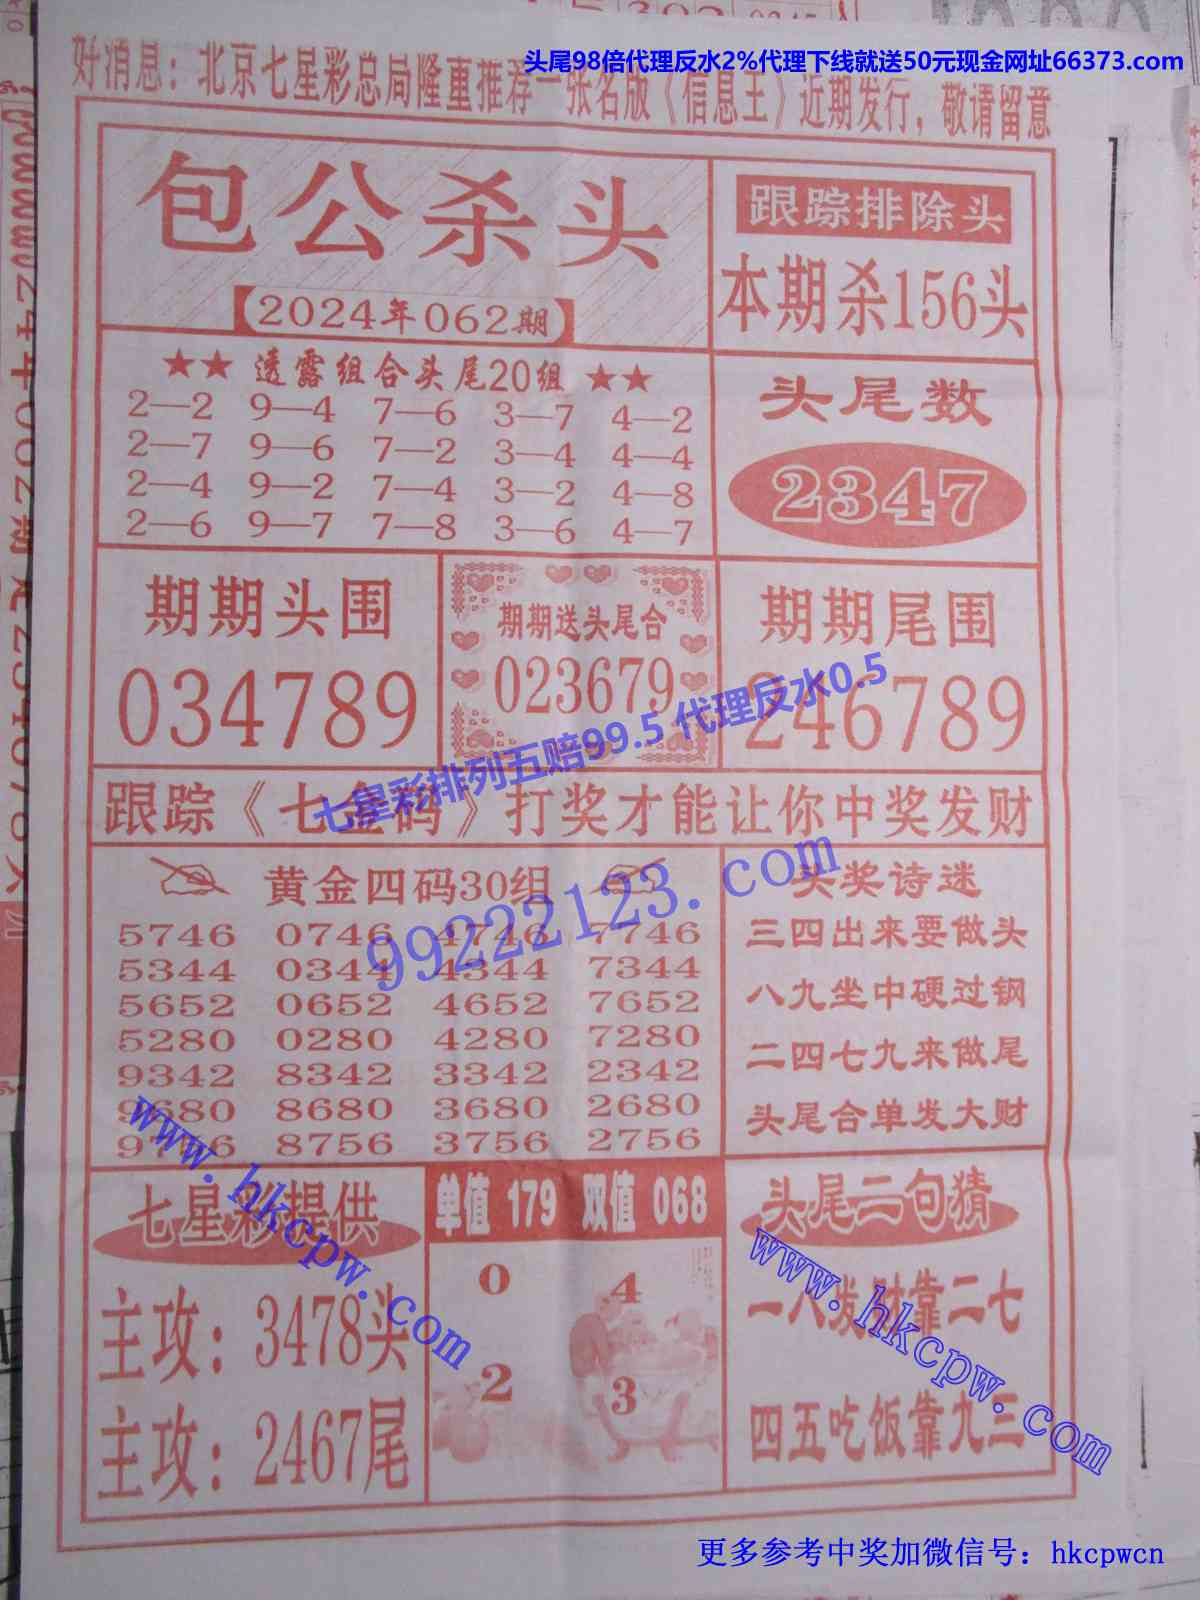 头尾98倍代理反水2%代理下线就送50元现金网址66373.com
好消息：北京七星彩总局隆重推荐一张名版《信息王》近期发行，敬请留意
包公杀头
【2024年062期】
跟踪排除头
本期杀156头
★★ 透露组合头尾20组 ★★
2—2 9—4 7—6 3—7 4—2
2—7 9—6 7—2 3—4 4—4
2—4 9—2 7—4 3—2 4—8
2—6 9—7 7—8 3—6 4—7
头尾数
2347
期期头围
034789
期期送头尾合
023679
期期尾围
246789
七星彩排列五赔99.5 代理反水0.5
跟踪《七金码》打奖才能让你中奖发财
99222123.com
黄金四码30组
5746 0746 4746 7746
5344 0344 4344 7344
5652 0652 4652 7652
5280 0280 4280 7280
9342 8342 3342 2342
9680 8680 3680 2680
9756 8756 3756 2756
头奖诗迷
三四出来要做头
八九坐中硬过钢
二四七九来做尾
头尾合单发大财
www.hkcpw.com
七星彩提供
主攻：3478头
主攻：2467尾
单值 179 双值 068
0 4
2 3
头尾二句猜
一八发财靠二七
四五吃饭靠九三
www.hkcpw.com
更多参考中奖加微信号：hkcpwcn